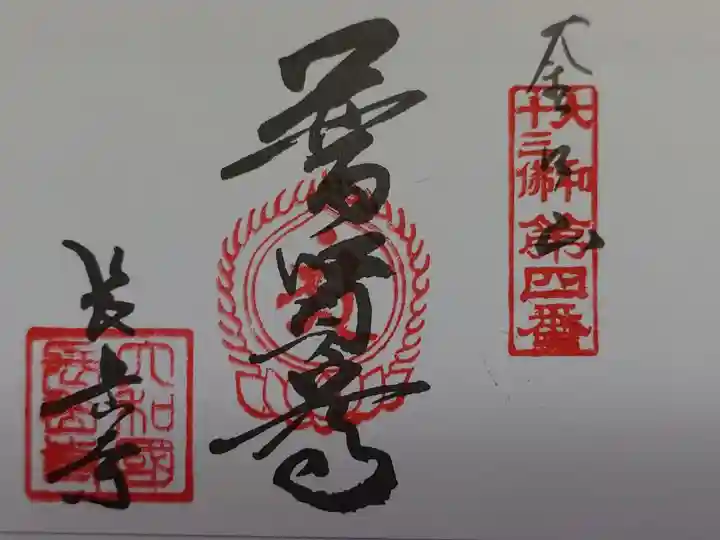 釜口山
大和
十三佛
第四番
普賢尊
長岳寺
大和國
長岳寺